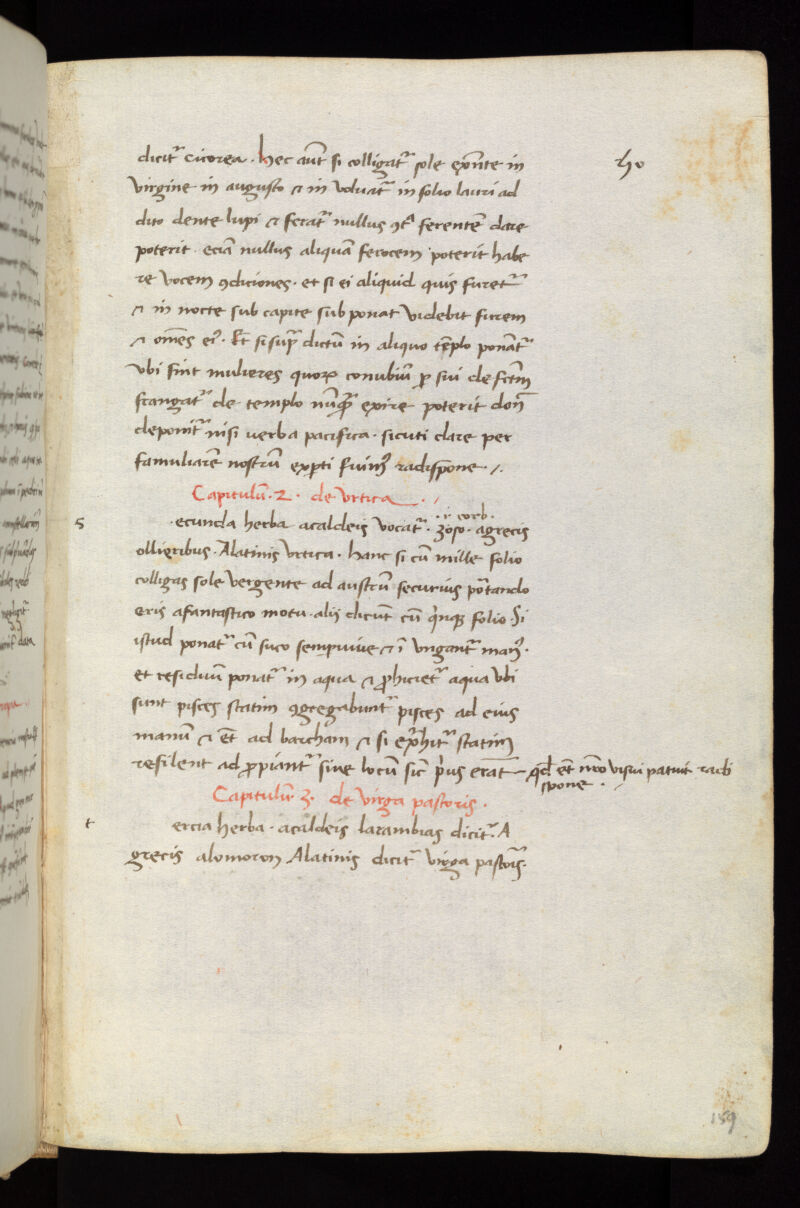 dicit᷑ cicorea · hec aut̄ si colligat᷑ sole exn̄te in
virgine in augusto & in voluat᷑ in folio lauri ad
dito dente lupi & ferat᷑ nullus ꝯt᷑ ferentē dare
poterit · eciā nullus aliquā ferocem poterit habe
re vocem ꝯdiciones · et si ei aliquid quis furet᷑
& in nocte sub capite sub ponat videbit furem
& om̄es ei⁹ · Et si sup̄ dictū in aliquo tēplo ponat᷑
vbi sint mulieres quoꝝ conubiū ꝓ sui defctm̄
frangat᷑ de templo nūꝙ exire poterit don̄
deponit᷑ nisi verba pacifica · sicuti dare per
familiarē nostrū exꝑti fuim⁹ radispone ·
Capitulū · 2 · de vrtica
s
· ecunda herba acaldeis vocat᷑ · zoso · agrecis
ollieribus · Alatinis vrtica · hanc si cū mille folio
colligas sole vergente ad austrū securius portando
eris afantastico motu · alij dicunt cū qinqꝫ folio · Si
istud ponat᷑ cū suco sempuiue & ī vngant᷑ man⁹ ·
et residuū ponat᷑ in aqua & ꝓhiciet᷑ aqua vbi
sunt pisces statim ꝯgregabunt᷑ pisces ad eius
manū & et̄ ad barcham & si ext̄hit᷑ statim
resilent ad ꝓpiant᷑ siue locū sic pius erat qd̄ et̄ nr̄o visui patuit radi
spone ·
Capitulū · 3 · de virga pastoris ·
t
ercia herba · acaldeis larambias dicit᷑ · A
grecis alomoron Alatinis dicit᷑ virga pastoris ·
159